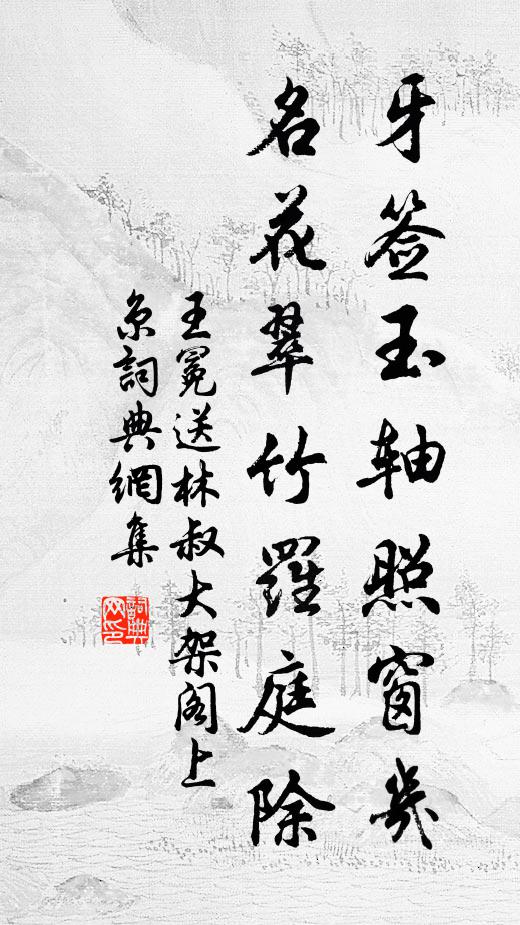 牙签玉轴照窗几
名花翠竹羅庭除
王冕送林叔大架阁上
京詞典網集
詞典網印